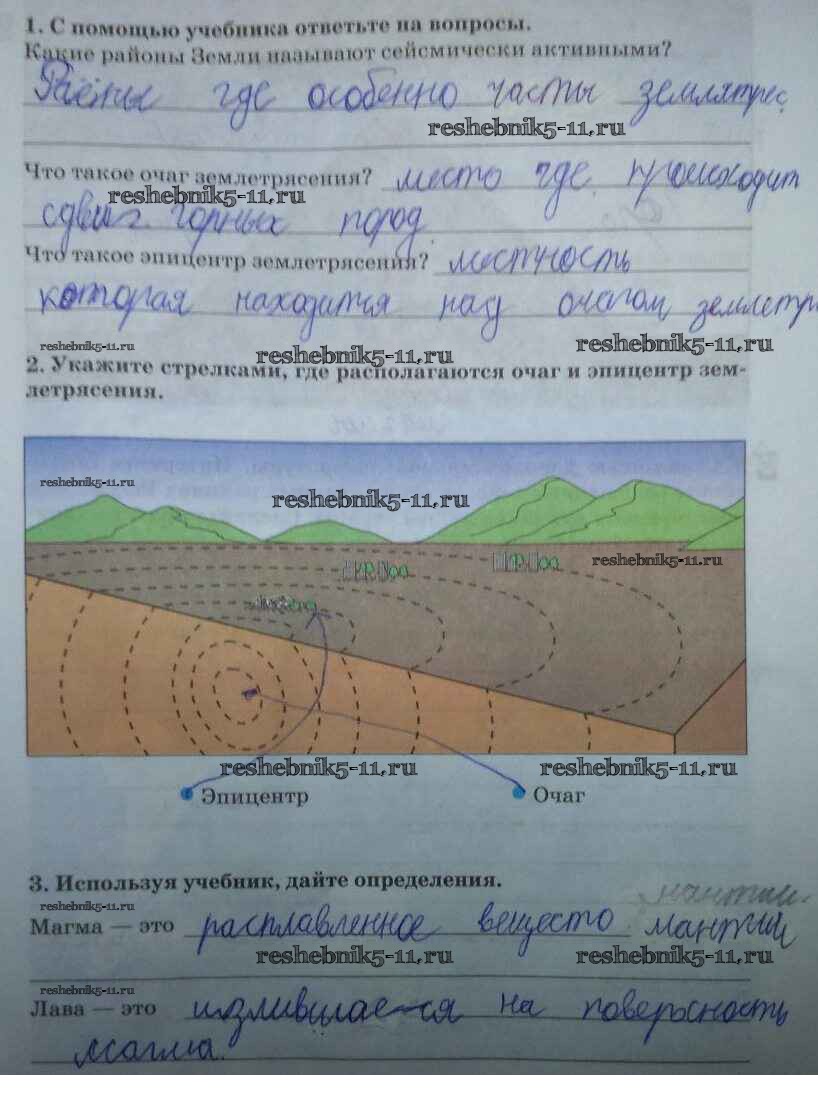 1. С помощью учебника ответьте на вопросы.
Какие районы Земли называют сейсмически активными?
где особенно часты землятрес
reshebnik5-11.ru
Что такое очаг землетрясения? место где происходит
reshebnik5-11.ru
сдвиг горных пород.
Что такое эпицентр землетрясения? местность
которая находится над очагом землетр
reshebnik5-11.ru
reshebnik5-11.ru
reshebnik5-11.ru
2. Укажите стрелками, где располагаются очаг и эпицентр зем-
летрясения.
reshebnik5-11.ru
reshebnik5-11.ru
reshebnik5-11.ru
reshebnik5-11.ru
reshebnik5-11.ru
Эпицентр Очаг
3. Используя учебник, дайте определения.
reshebnik5-11.ru
мантии.
Магма — это расплавленное вещесто мантии
reshebnik5-11.ru
reshebnik5-11.ru
reshebnik5-11.ru
Лава — это на
магма.